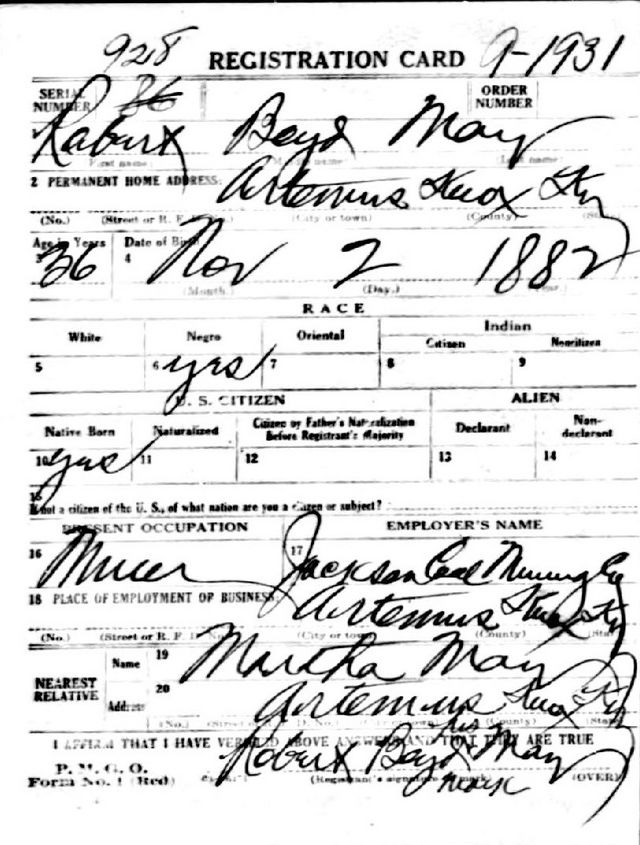 928 REGISTRATION CARD 9-1931
SERIAL NUMBER 86 ORDER NUMBER
Robert Boyd May
First name) (Middle name) (Last name)
2 PERMANENT HOME ADDRESS:
Artemus Knox Ky
(No.) (Street or R. F. D. No.) (City or town) (County) (State)
Age in Years Date of Birth
3 36 4 Nov 2 1882
(Month.) (Day.) (Year.)
RACE
White Negro Oriental Indian
Citizen Noncitizen
5 6 yes 7 8 9
U. S. CITIZEN ALIEN
Native Born Naturalized Citizen by Father's Naturalization Before Registrant's Majority Declarant Non-declarant
10 yes 11 12 13 14
15
If not a citizen of the U. S., of what nation are you a citizen or subject?
PRESENT OCCUPATION EMPLOYER'S NAME
16 Miner 17 Jackson Coal Mining Co
18 PLACE OF EMPLOYMENT OF BUSINESS:
Artemus Knox Ky
(No.) (Street or R. F. D. No.) (City or town) (County) (State)
NEAREST RELATIVE
Name 19 Martha May
Address 20 Artemus Knox Ky
(No.) (Street or R. F. D. No.) (City or town) (County) (State)
I AFFIRM THAT I HAVE VERIFIED ABOVE ANSWERS AND THAT THEY ARE TRUE
his
Robert Boyd May
mark
P. M. G. O.
Form No. 1 (Red) (Registrant's signature or mark) (OVER)